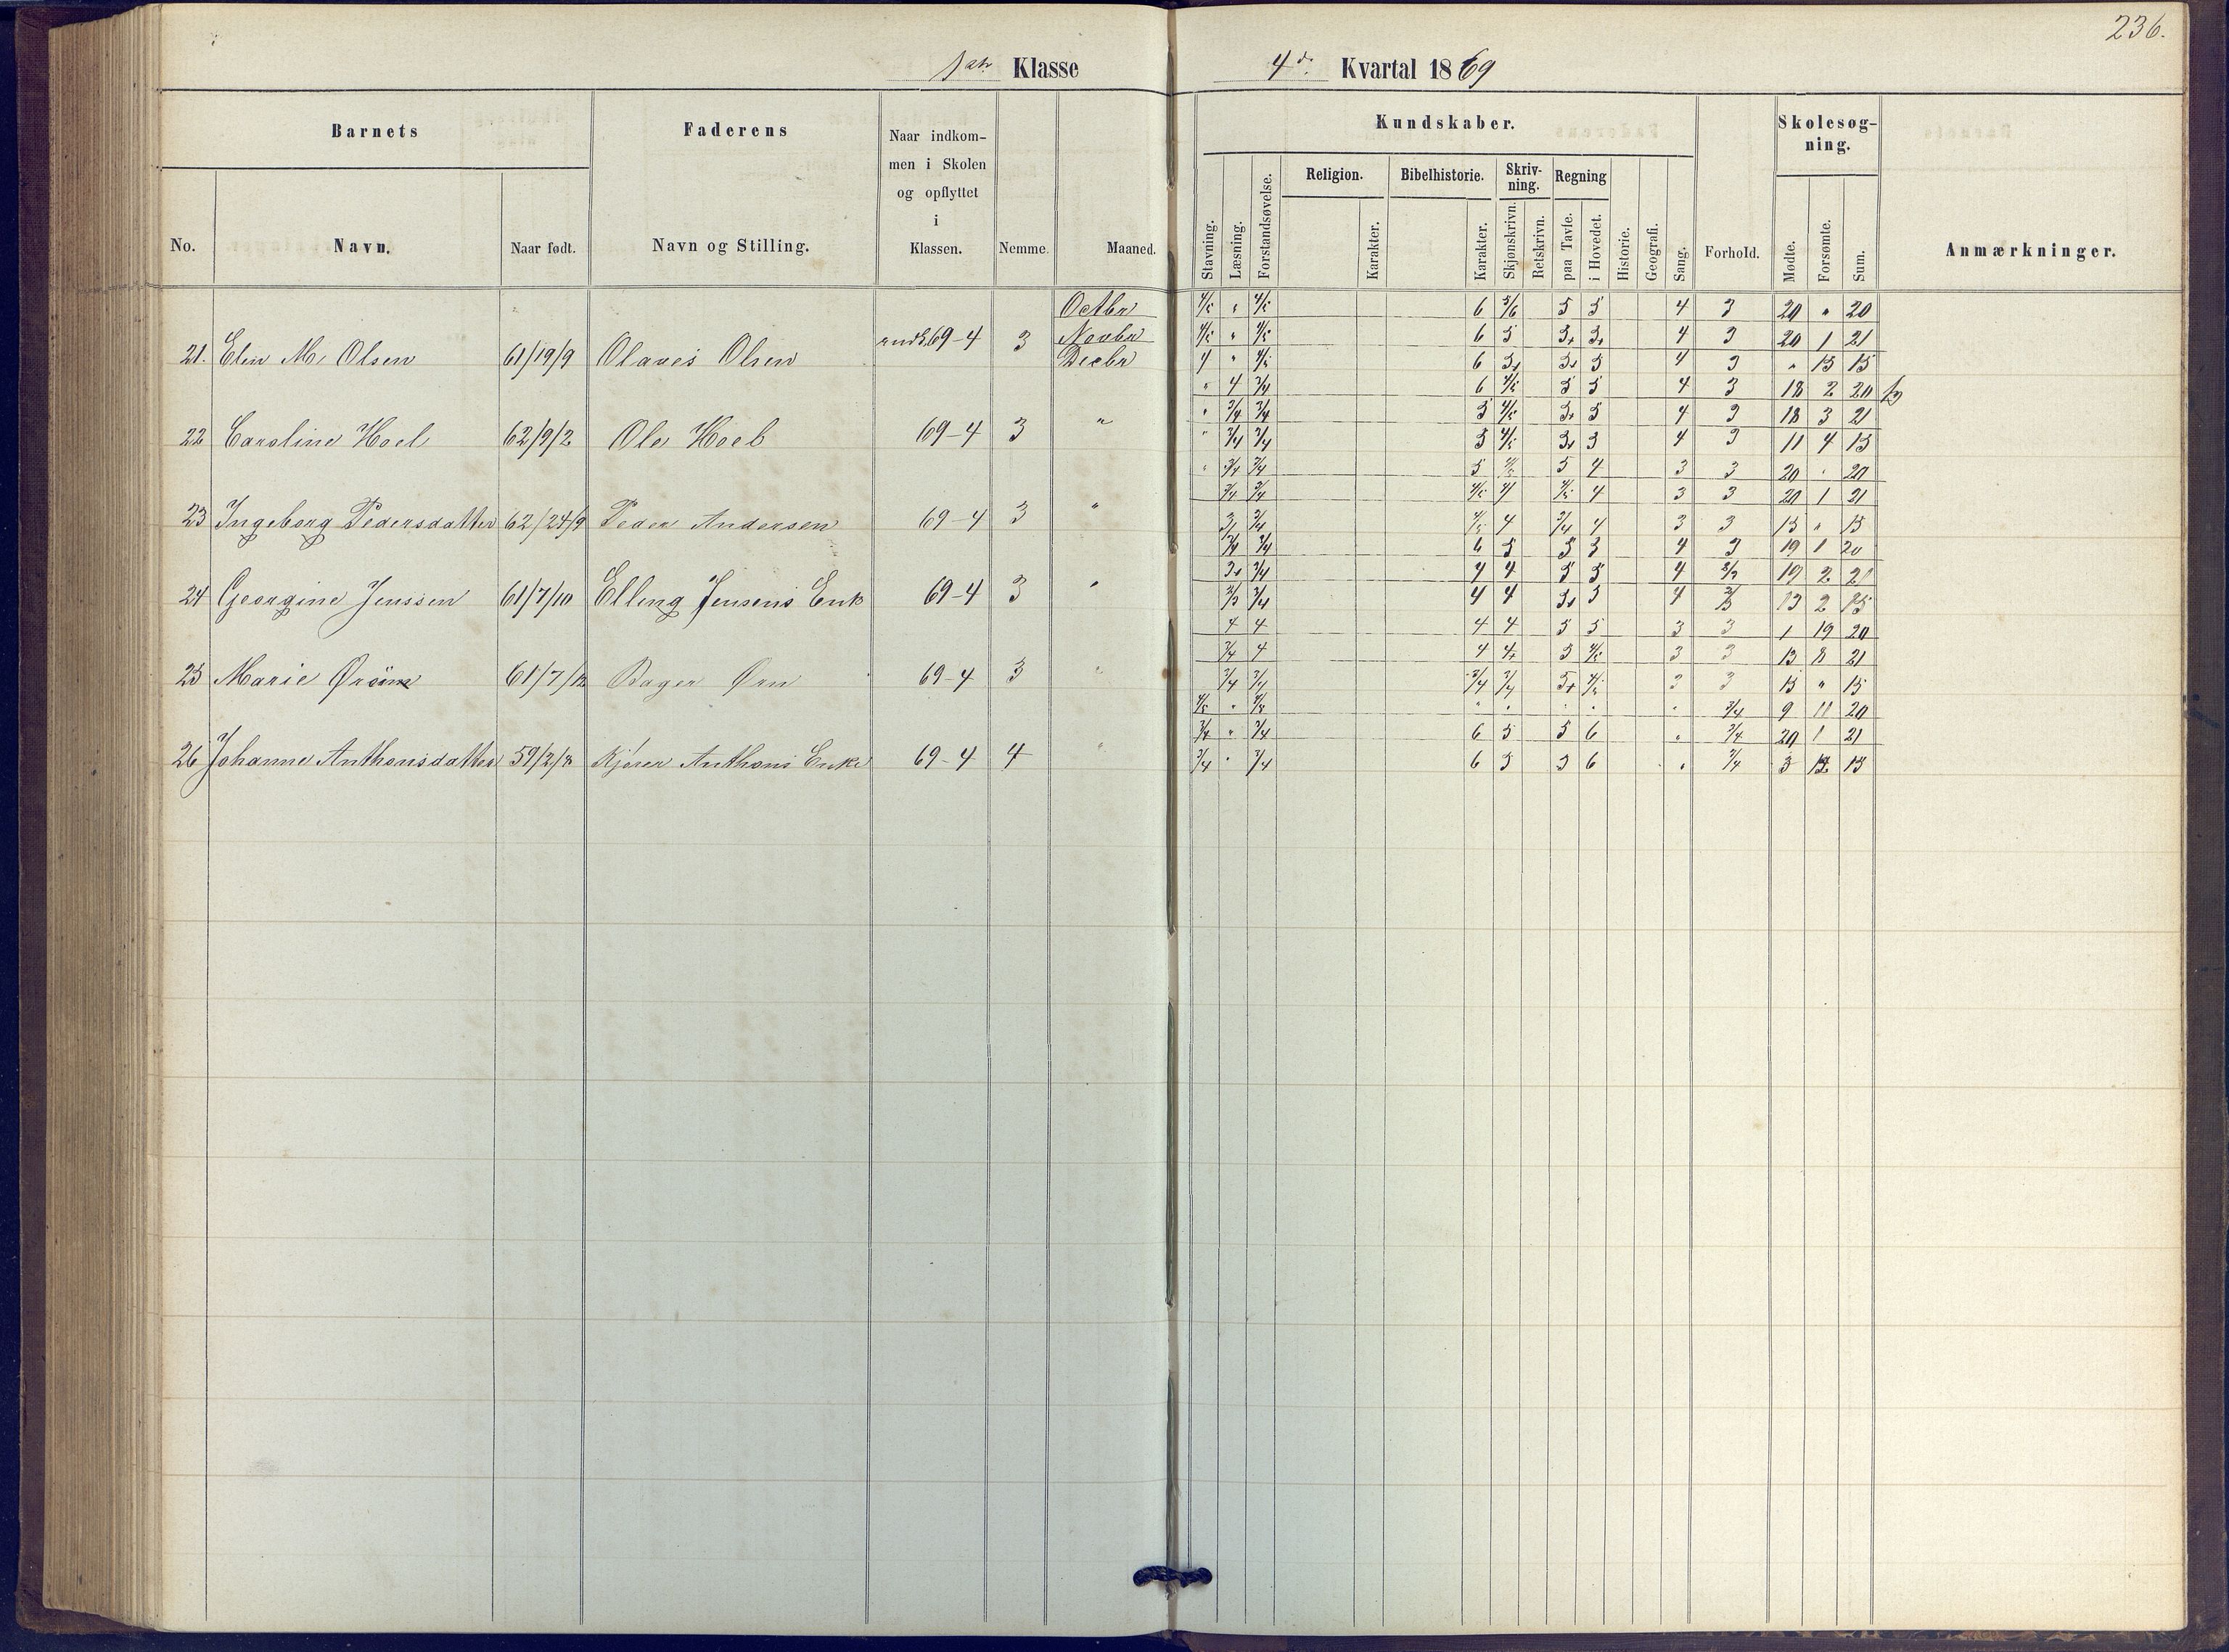 236.
Klasse
4de Kvartal 1869
Barnets
Faderens
Naar indkom-
men i Skolen
og opflyttet
i
Klassen.
No.
Navn.
Naar født.
Navn og Stilling.
Nemme.
Maaned.
Kundskaber.
Skolesøg-
ning.
Religion.
Bibelhistorie.
Skriv-
ning.
Regning
Stavning.
Læsning.
Forstandsøvelse.
Karakter.
Karakter.
Skjønskrivn.
Retskrivn.
paa Tavle.
i Hovedet.
Historie.
Geografi.
Sang.
Forhold.
Mødte.
Forsømte.
Sum.
Anmærkninger.
Octbr 4/5 " 4/5 6 5/6 5 5 4 3 20 " 20
21. Elin M. Olsen 61/19/9 Olaves Olsen 69-4 3 Novbr 4/5 " 4/5 6 5 5+ 5+ 4 3 20 1 21
Decbr 4 " 4/5 6 5+ 5+ 5 4 3 " 15 15
" 4 3/4 6 4/5 5 5 4 3 18 2 20
" 3/4 3/4 5 4/5 5+ 5 4 3 18 3 21
22 Caroline Hoel 62/9/2 Ole Hoel 69-4 3 " " 3/4 3/4 5 4/5 5+ 5 4 3 11 4 15
" 3/4 3/4 5 4/5 5 4 3 3 20 " 20
3/4 3/4 4/5 4 4/5 4 3 3 20 1 21
23 Ingeborg Pedersdatter 62/24/9 Peder Andersen 69-4 3 " 3/4 4/5 4 3/4 4 3 3 15 " 15
3/4 3/4 6 5 5 5 4 3 19 1 20
3+ 3/4 4 4 5 5 4 19 2 21
24 Georgine Jenssen 61/7/10 Elling Jensens Enk 69-4 3 " 3/4 4 4 5+ 5 4 13 2 15
4 4 4 4 5 5 3 3 1 19 20
3/4 4 4 4+ 5 4/5 3 3 13 8 21
25 Marie 61/7/12 Bager Ørn 69-4 3 " 3/4 3/4 3/4 3/4 5+ 4/5 3 3 15 " 15
4/5 " 4/5 " " " " " 3/4 9 11 20
3/4 " 3/4 6 5 5 6 " 3/4 20 1 21
26 Johanne Anthonsdatter 59/2/8 Anthons Enke 69-4 4 " 3/4 " 3/4 6 5 5 6 " 3/4 3 12 15